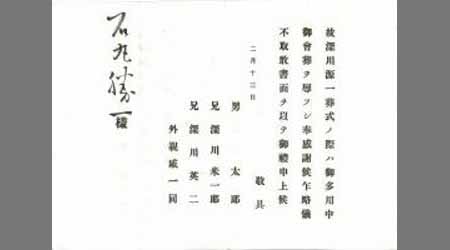 故深川源一葬式ノ際ハ御多用中
御會葬ヲ辱フシ奉感謝候乍略儀
不取敢書面ヲ以テ御禮申上候
敬具
二月十三日
男 太郎
兄 深川米一郎
兄 深川英二
外親戚一同
石丸勝一様